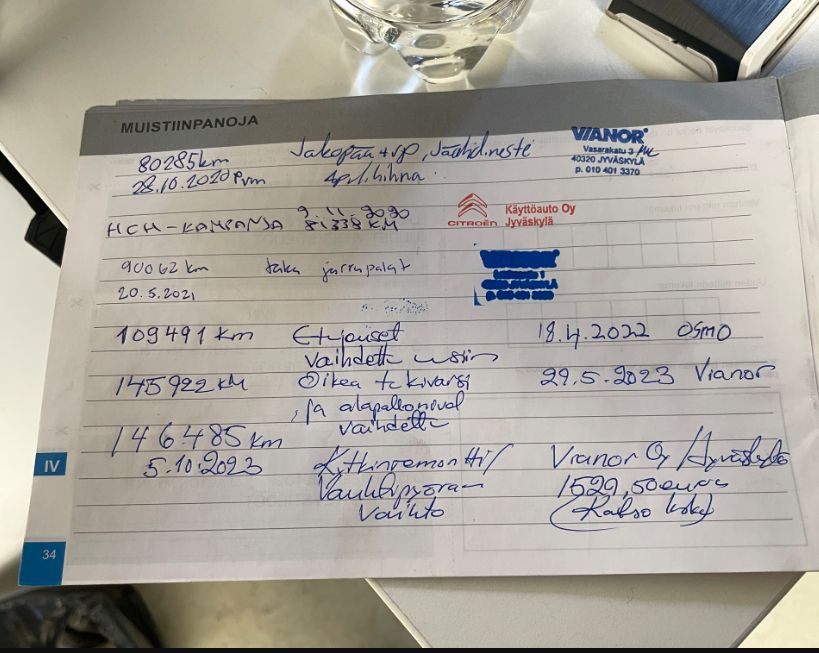 MUISTIINPANOJA
80285km Jakopää + vp, Jäähd.neste
28.10.2020 Pvm Apul.hihna
VIANOR
Vasarakatu 3
40320 JYVÄSKYLÄ
p. 010 401 3370
9.11.2020
HCM-KAMPANJA 81338 KM
CITROËN Käyttöauto Oy
Jyväskylä
90062 km taka jarrupalat
20.5.2021
VIANOR
109491 km Etujouset 18.4.2022 OSMO
vaihdettu uusiin
145922 KM Oikea tukivarsi 29.5.2023 Vianor
, ja alapallonivel
vaihdettu
146485 km
5.10.2023 Kytkinremontti/ Vianor Oy Jyväskylä
Vauhtipyörän 1529,50 euroa
Vaihto (Katso
IV
34